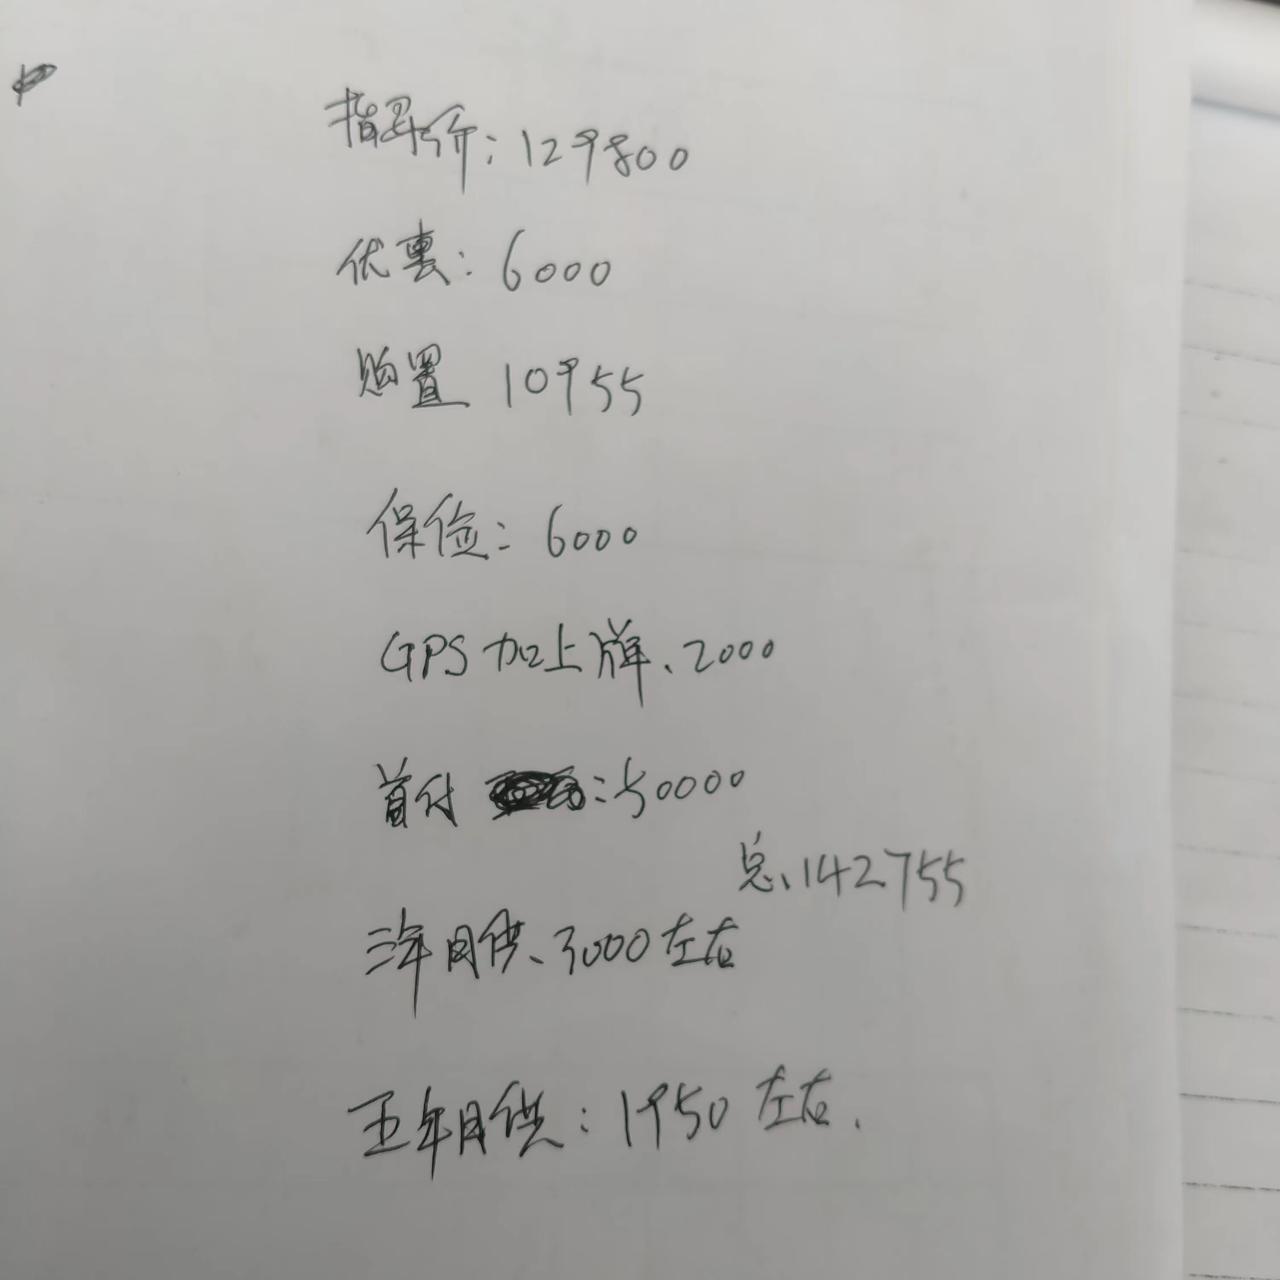 指导价：129800
优惠：6000
购置 10955
保险：6000
GPS加上牌、2000
首付：50000
总、142755
三年月供、3000左右
五年月供：1950左右.